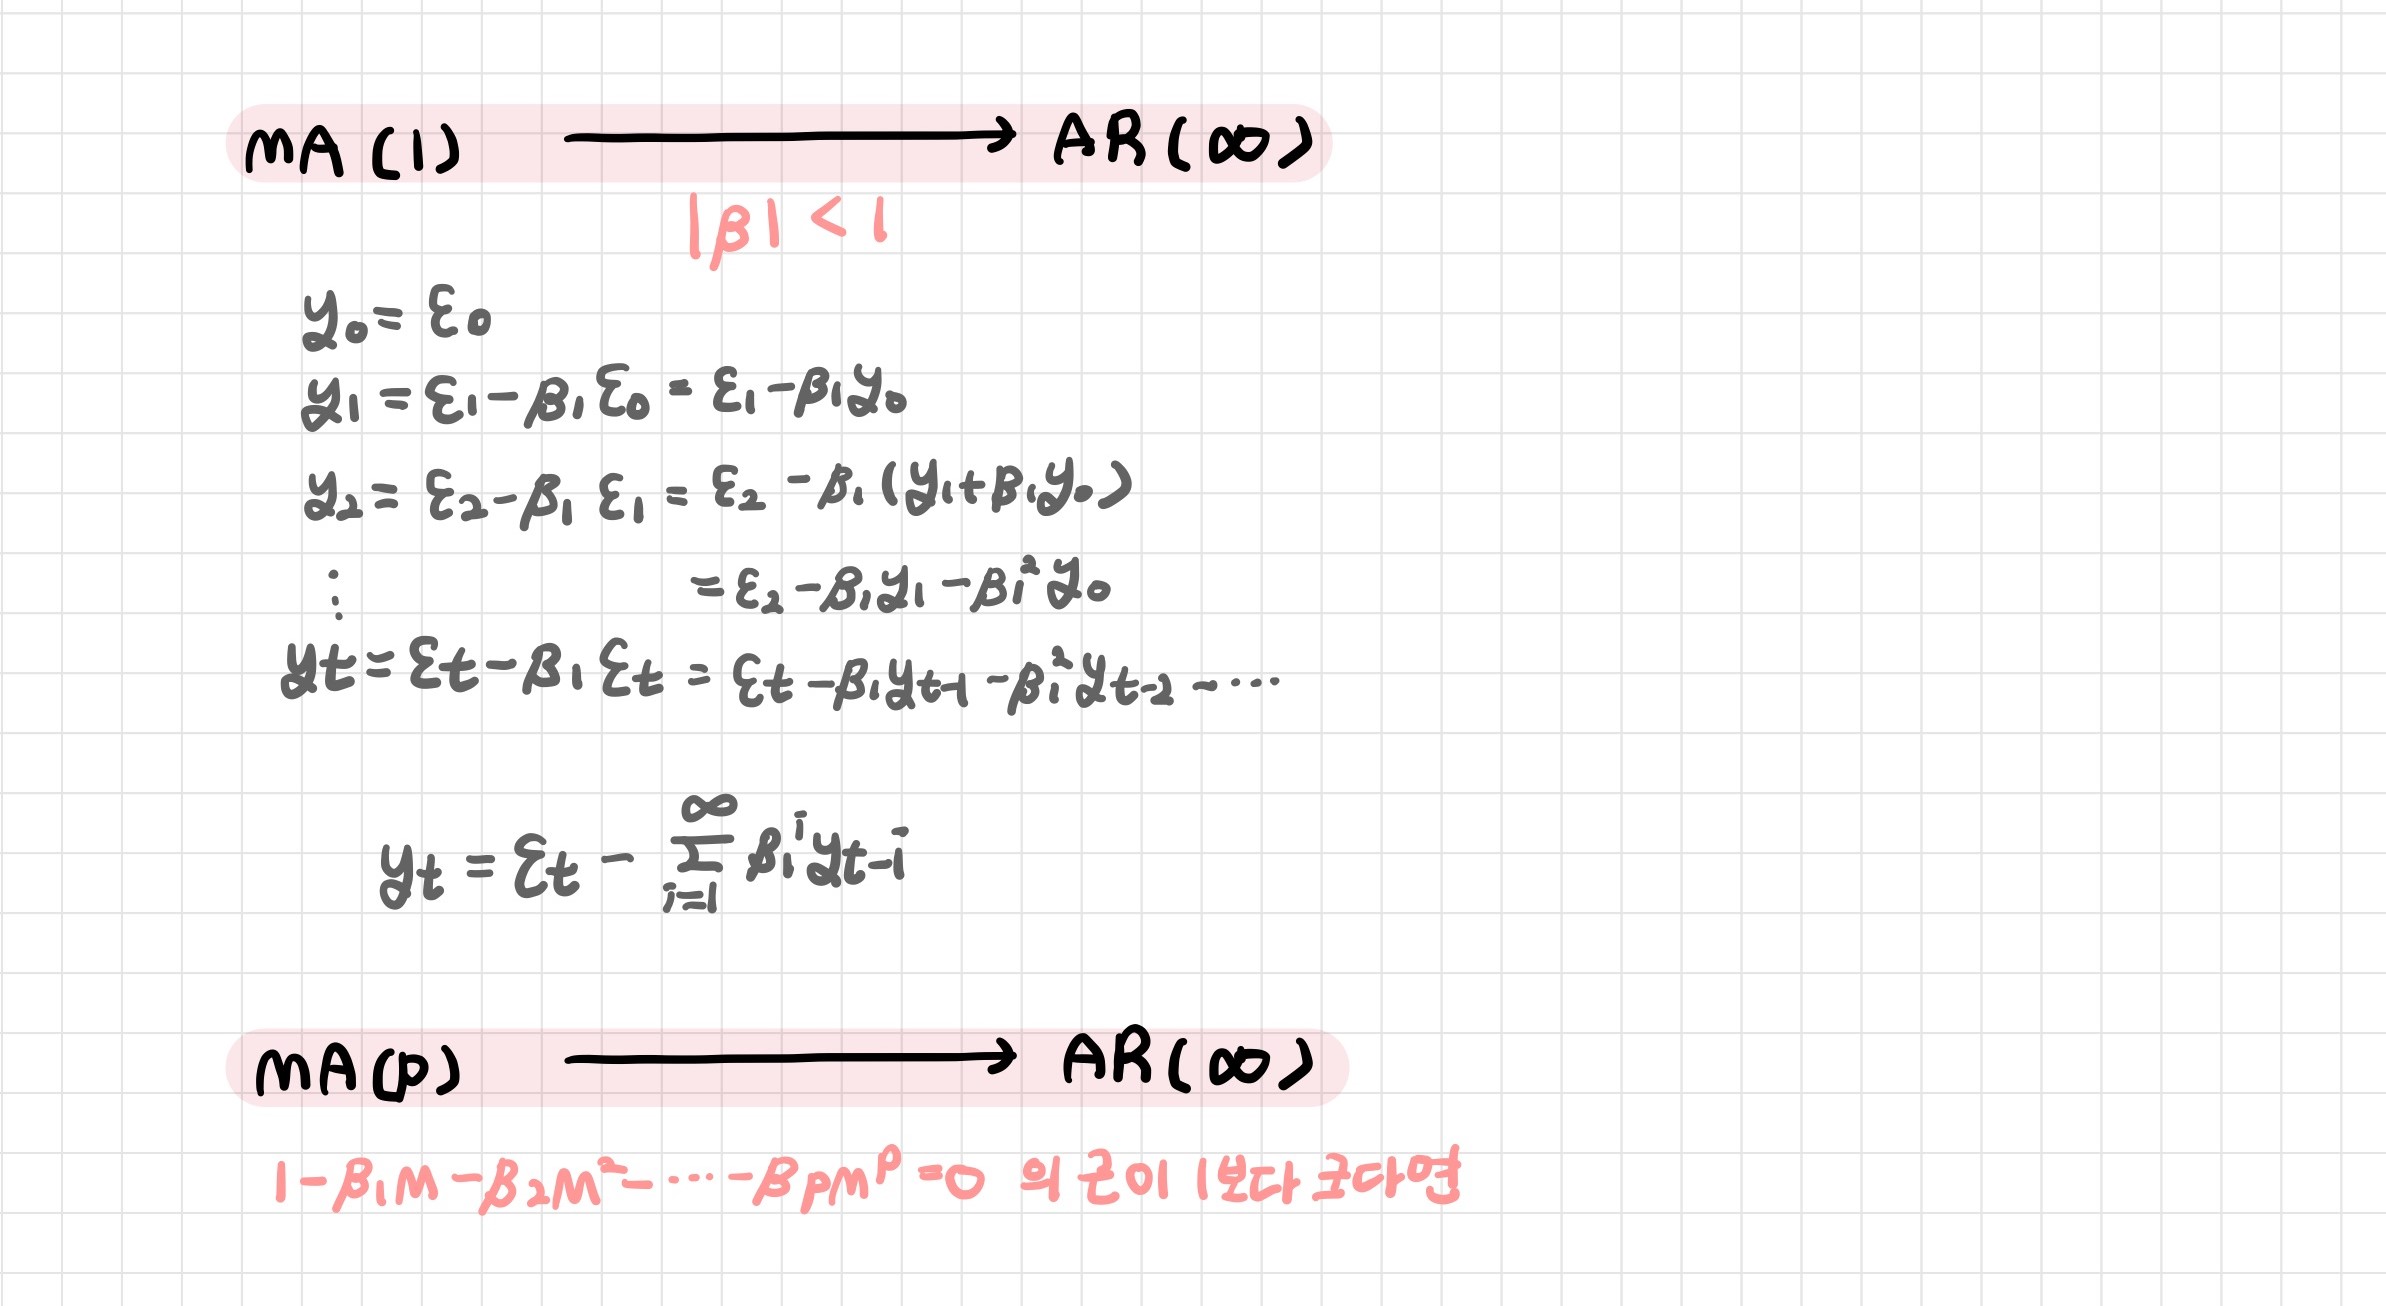 MA(1) → AR(∞)
|β| < 1
y₀ = ε₀
y₁ = ε₁ - β₁ε₀ = ε₁ - β₁y₀
y₂ = ε₂ - β₁ε₁ = ε₂ - β₁(y₁ + β₁y₀)
⋮ = ε₂ - β₁y₁ - β₁²y₀
yt = εt - β₁εt = εt - β₁yt-1 - β₁²yt-2 - ⋯
yt = εt - ∑_{i=1}^{∞} β₁ⁱ yt-i
MA(p) → AR(∞)
1 - β₁M - β₂M² - ⋯ - βpMᵖ = 0 의 근이 1보다 크다면